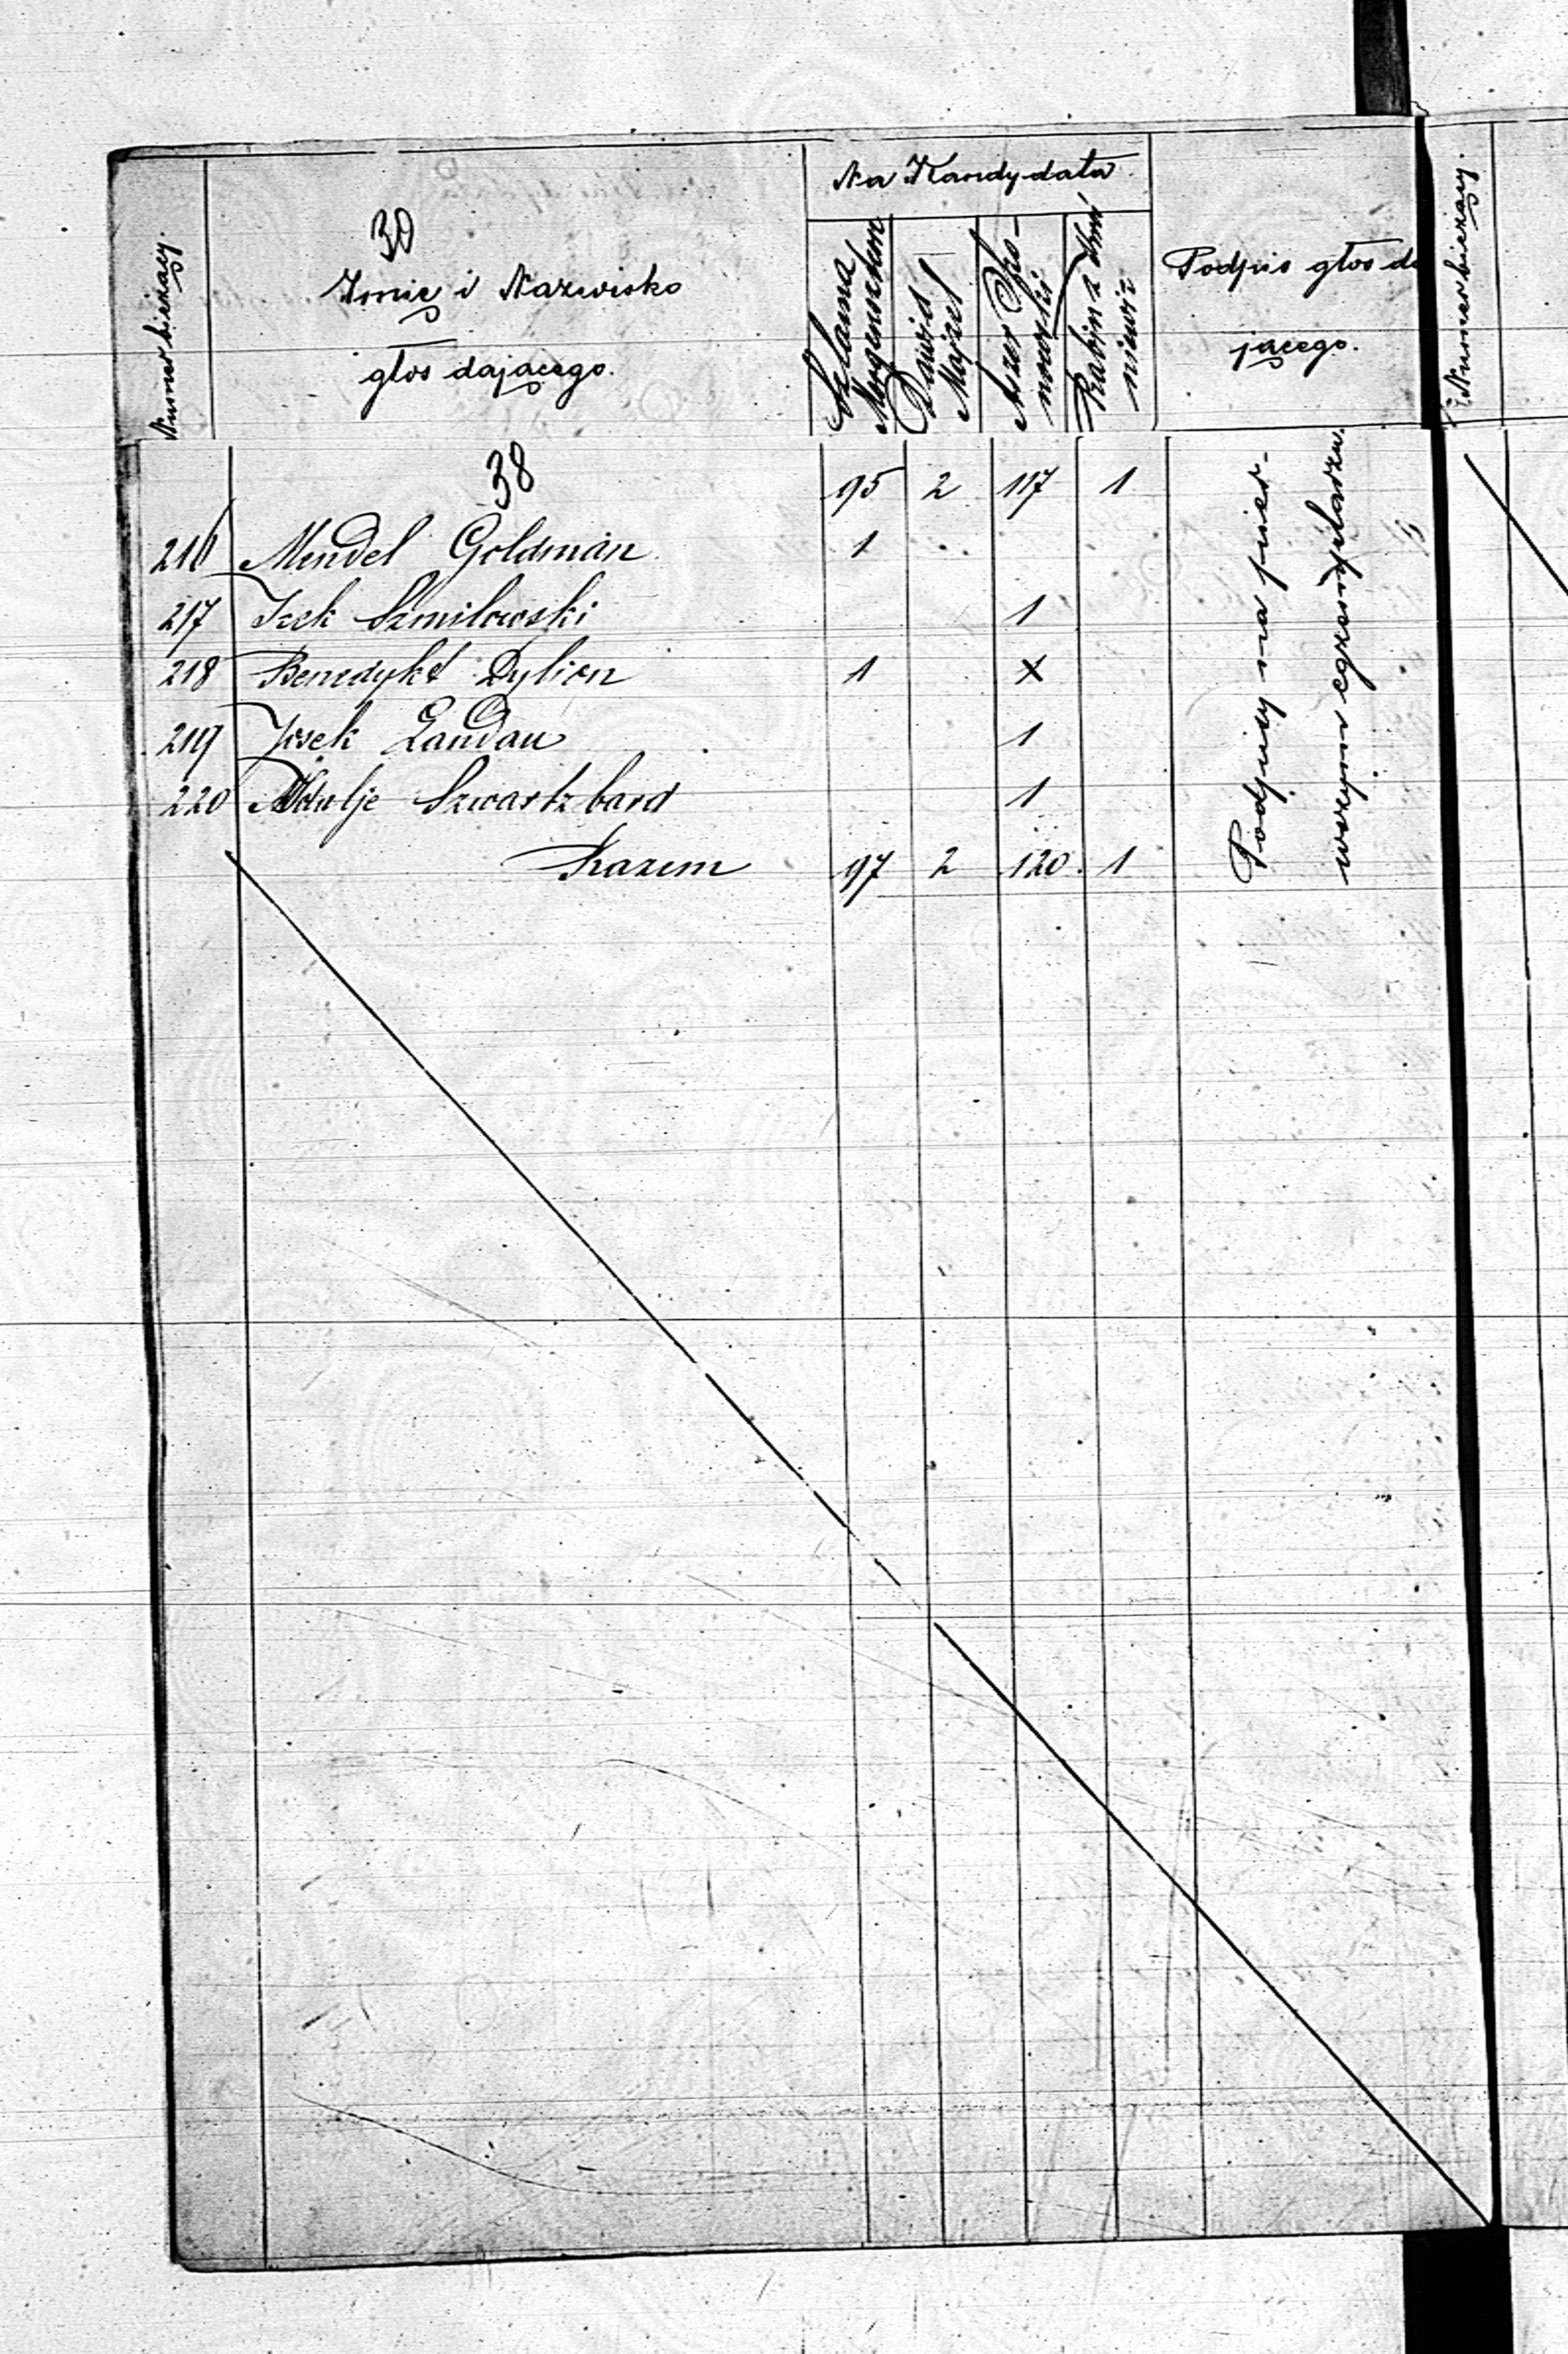 Numer bieżący.
30
Imię i Nazwisko
głos dającego.
Na Kandydata
Szlama
Morgensztern
Dawid
Majzel
Aszer
nowski
Rabin z
Podpis głos da
jącego.
Numer bieżący.
38
95 2 117 1
216 Mendel Goldman 1
217 Icek Szmilowski 1
218 Benedykt Dylion 1 x
219 Josek Landau 1
220 Szwartzbard 1
Razem 97 2 120. 1
Podpisy na pier-
wszym egzemplarzu.